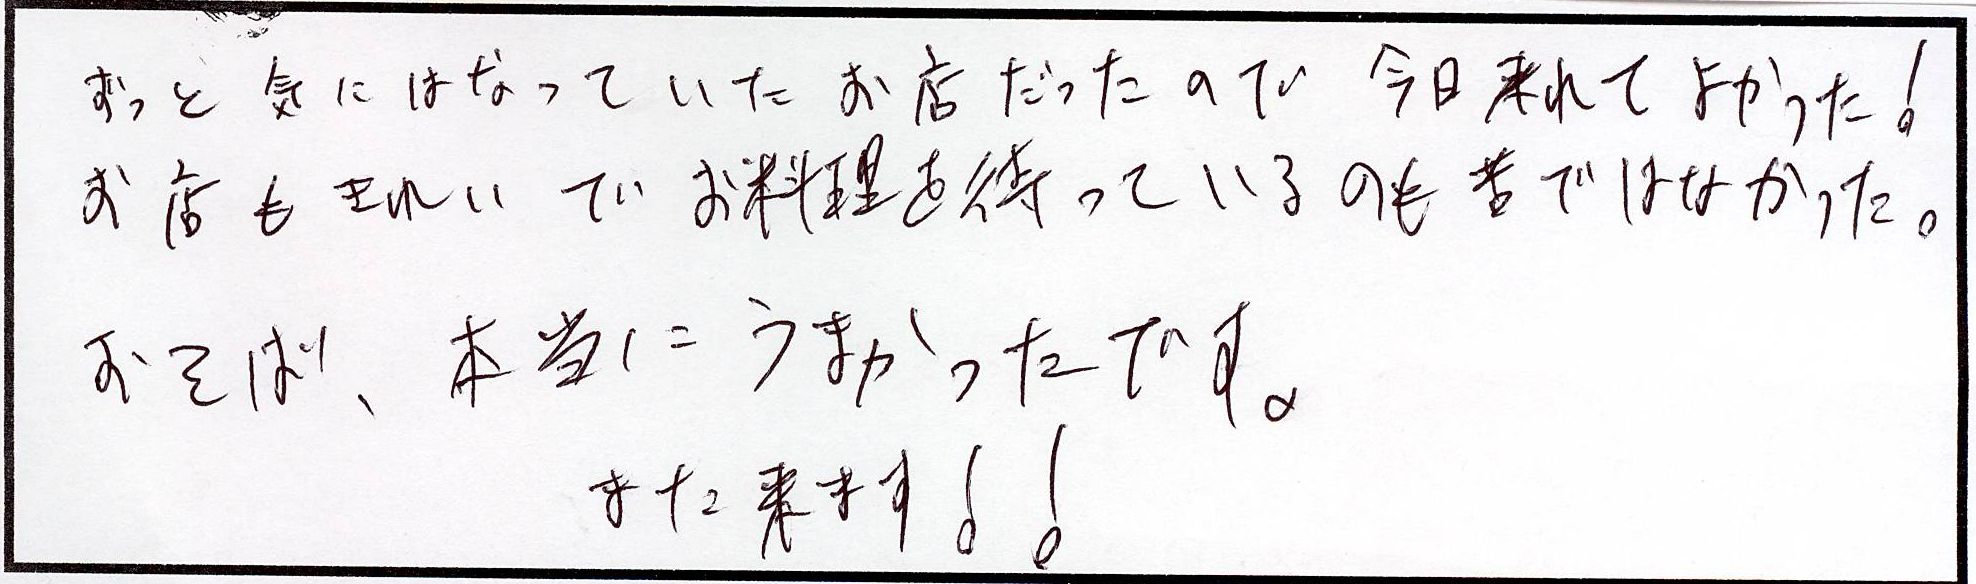 ずっと気にはなっていたお店だったので今日来れてよかった!
お店もきれいでお料理を待っているのも苦ではなかった。
おそば、本当にうまかったです。
また来ます!!